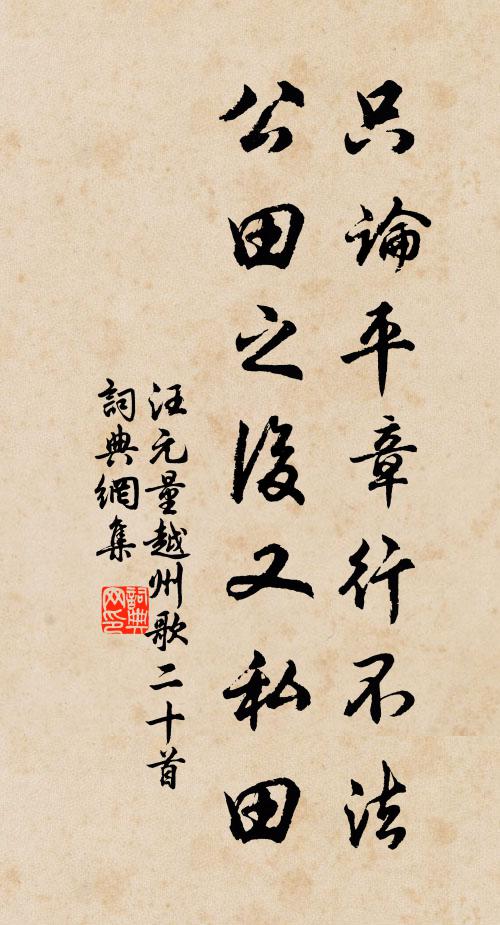 只論平章行不法
公田之後又私田
汪元量越州歌二十首
詞典網集
詞典
网印